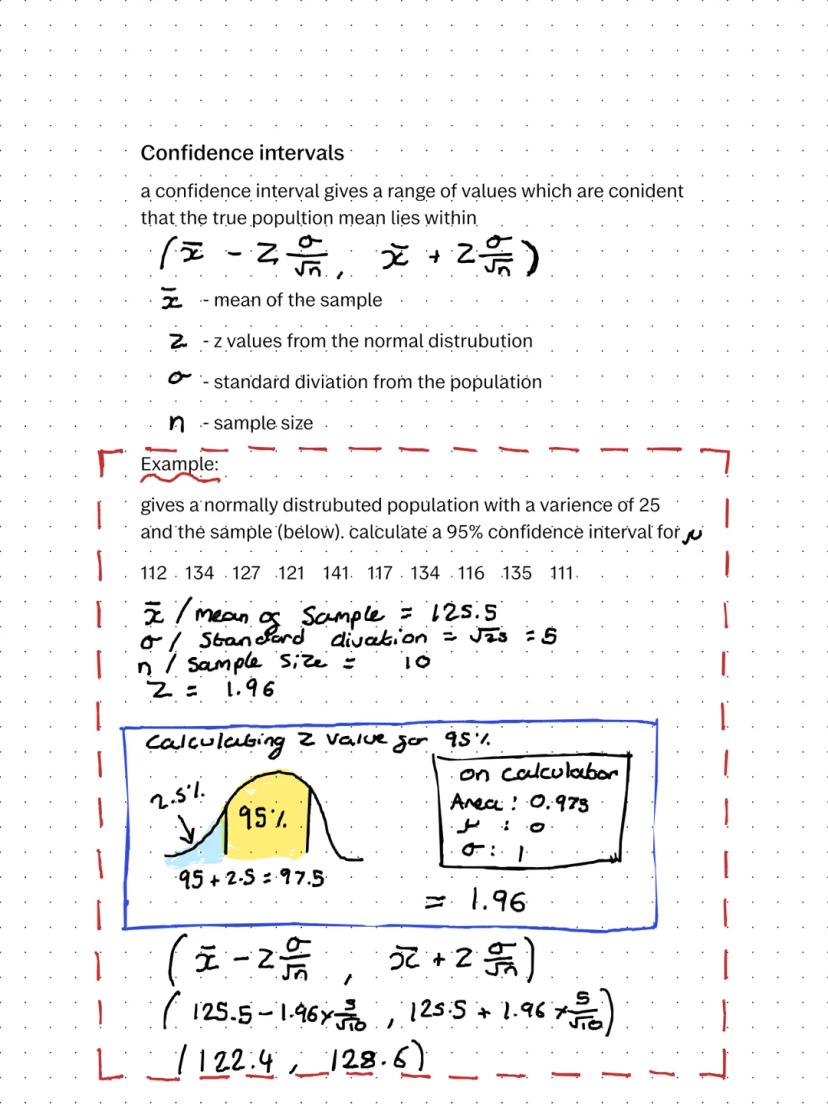 Confidence intervals
a confidence interval gives a range of values which are conident
that the true popultion mean lies within
(x̄ - z σ/√n, x̄ + z σ/√n)
x̄ - mean of the sample
z - z values from the normal distrubution
σ - standard diviation from the population
n - sample size
Example:
gives a normally distrubuted population with a varience of 25
and the sample (below). calculate a 95% confidence interval for μ
112 134 127 121 141 117 134 116 135 111
x̄ / mean of Sample = 125.5
σ / Standard divation = √25 = 5
n / Sample Size = 10
Z = 1.96
Calculating Z value for 95%
2.5%
95%
95 + 2.5 = 97.5
on calculator
Area : 0.975
μ : 0
σ : 1
= 1.96
(x̄ - z σ/√n , x̄ + z σ/√n)
(125.5 - 1.96 × 5/√10 , 125.5 + 1.96 × 5/√10)
(122.4 , 128.6)